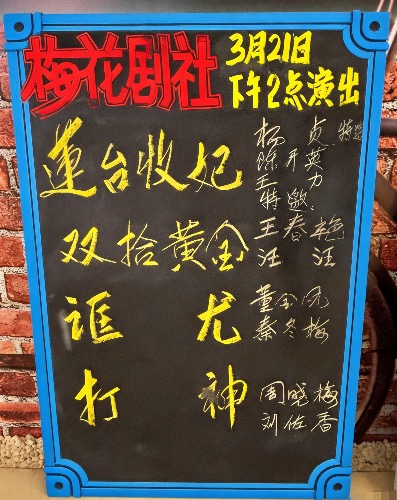 梅花剧社
3月21日
下午2点演出
蓮台收妃
杨 贞 特邀
陈开英
王 力
特邀
双拾黄金
王春艳
汪 汪
诓 尤
董金凤
秦冬梅
打 神
周晓梅
刘佐香